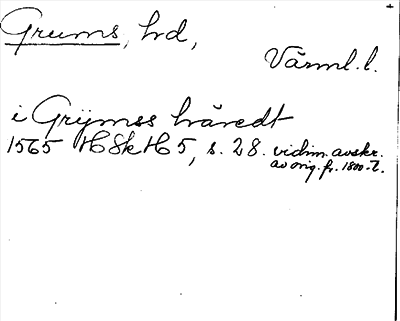 Grums, hd,
Värml. l.
i Grÿmss häredt
1565 HSkH 5, s. 28. vidim. avskr.
av orig. fr. 1800-t.